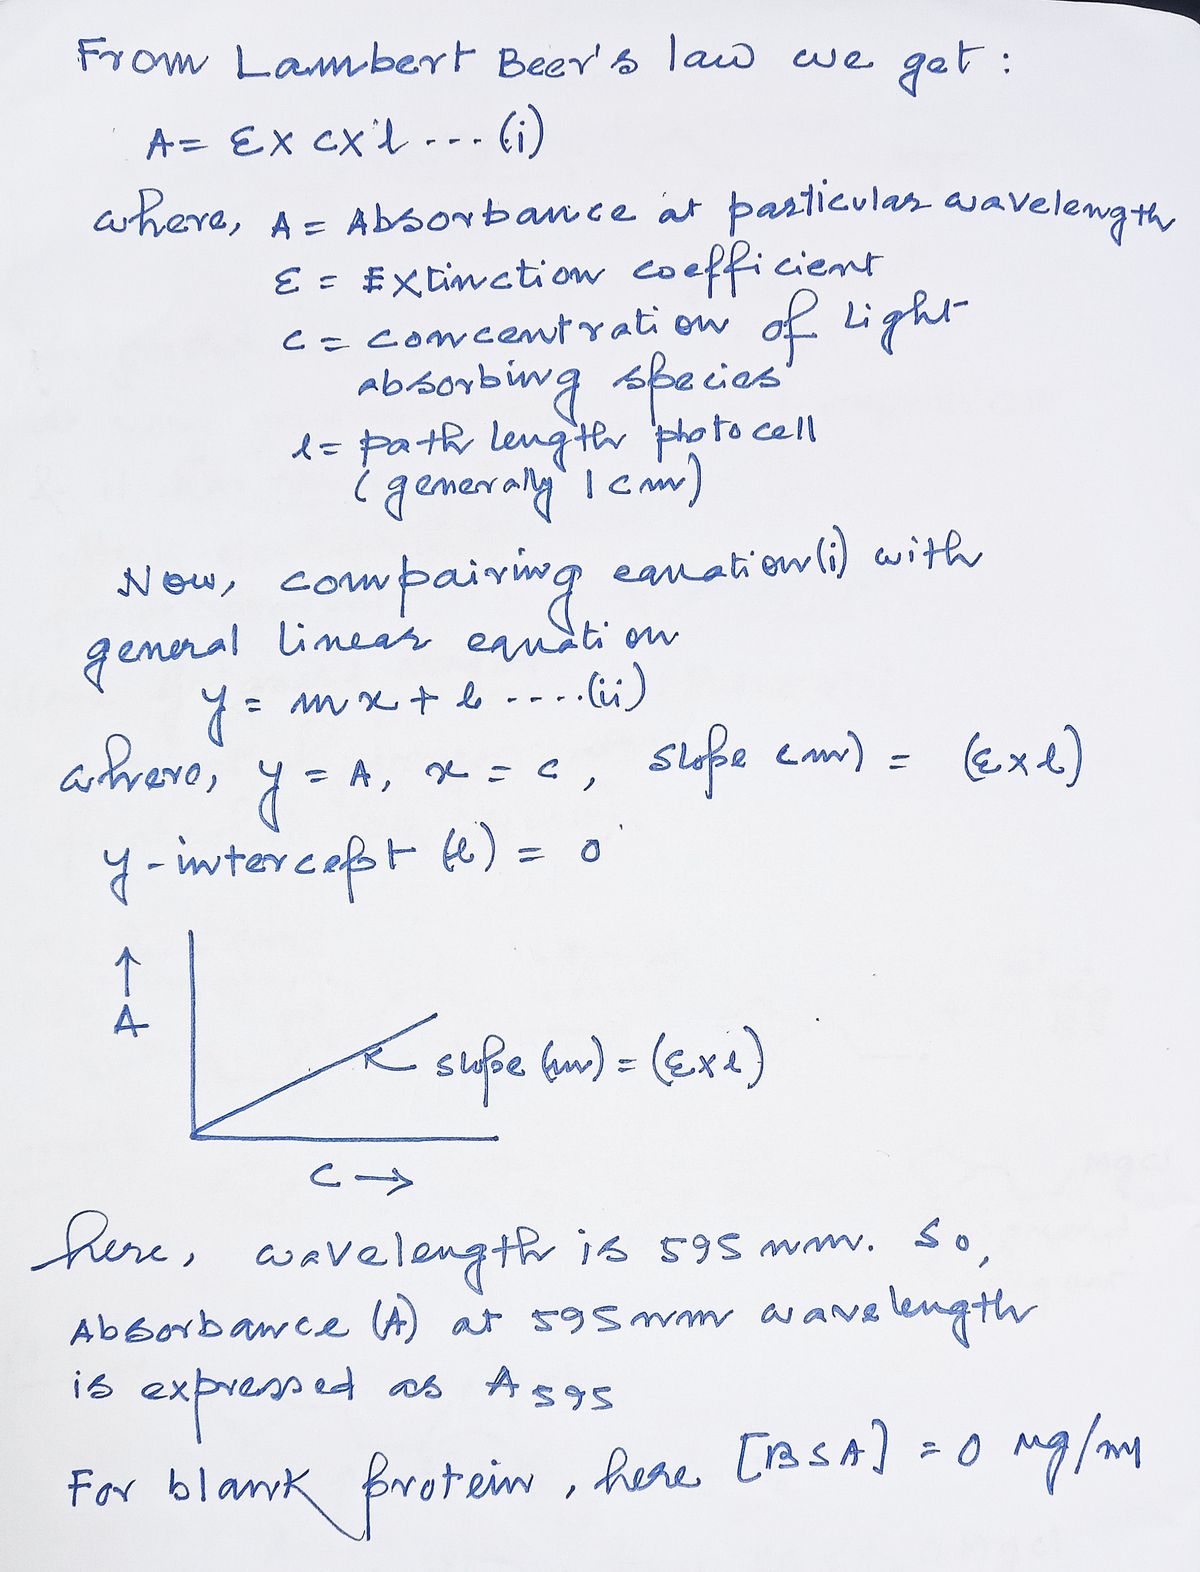 From Lambert Beer's law we get :
A = ε x c x l ... (i)
where, A = Absorbance at particular wavelength
ε = Extinction coefficient
c = concentration of light
absorbing species
l = path length photocell
(generally 1 cm)
Now, compairing equation (i) with
general linear equation
y = mx + b ....(ii)
where, y = A, x = c, slope (m) = (ε x l)
y-intercept (b) = 0
↑
A
slope (m) = (ε x l)
C →
here, wavelength is 595 nm. So,
Absorbance (A) at 595 nm wavelength
is expressed as A595
For blank protein, here [BSA] = 0 μg/ml